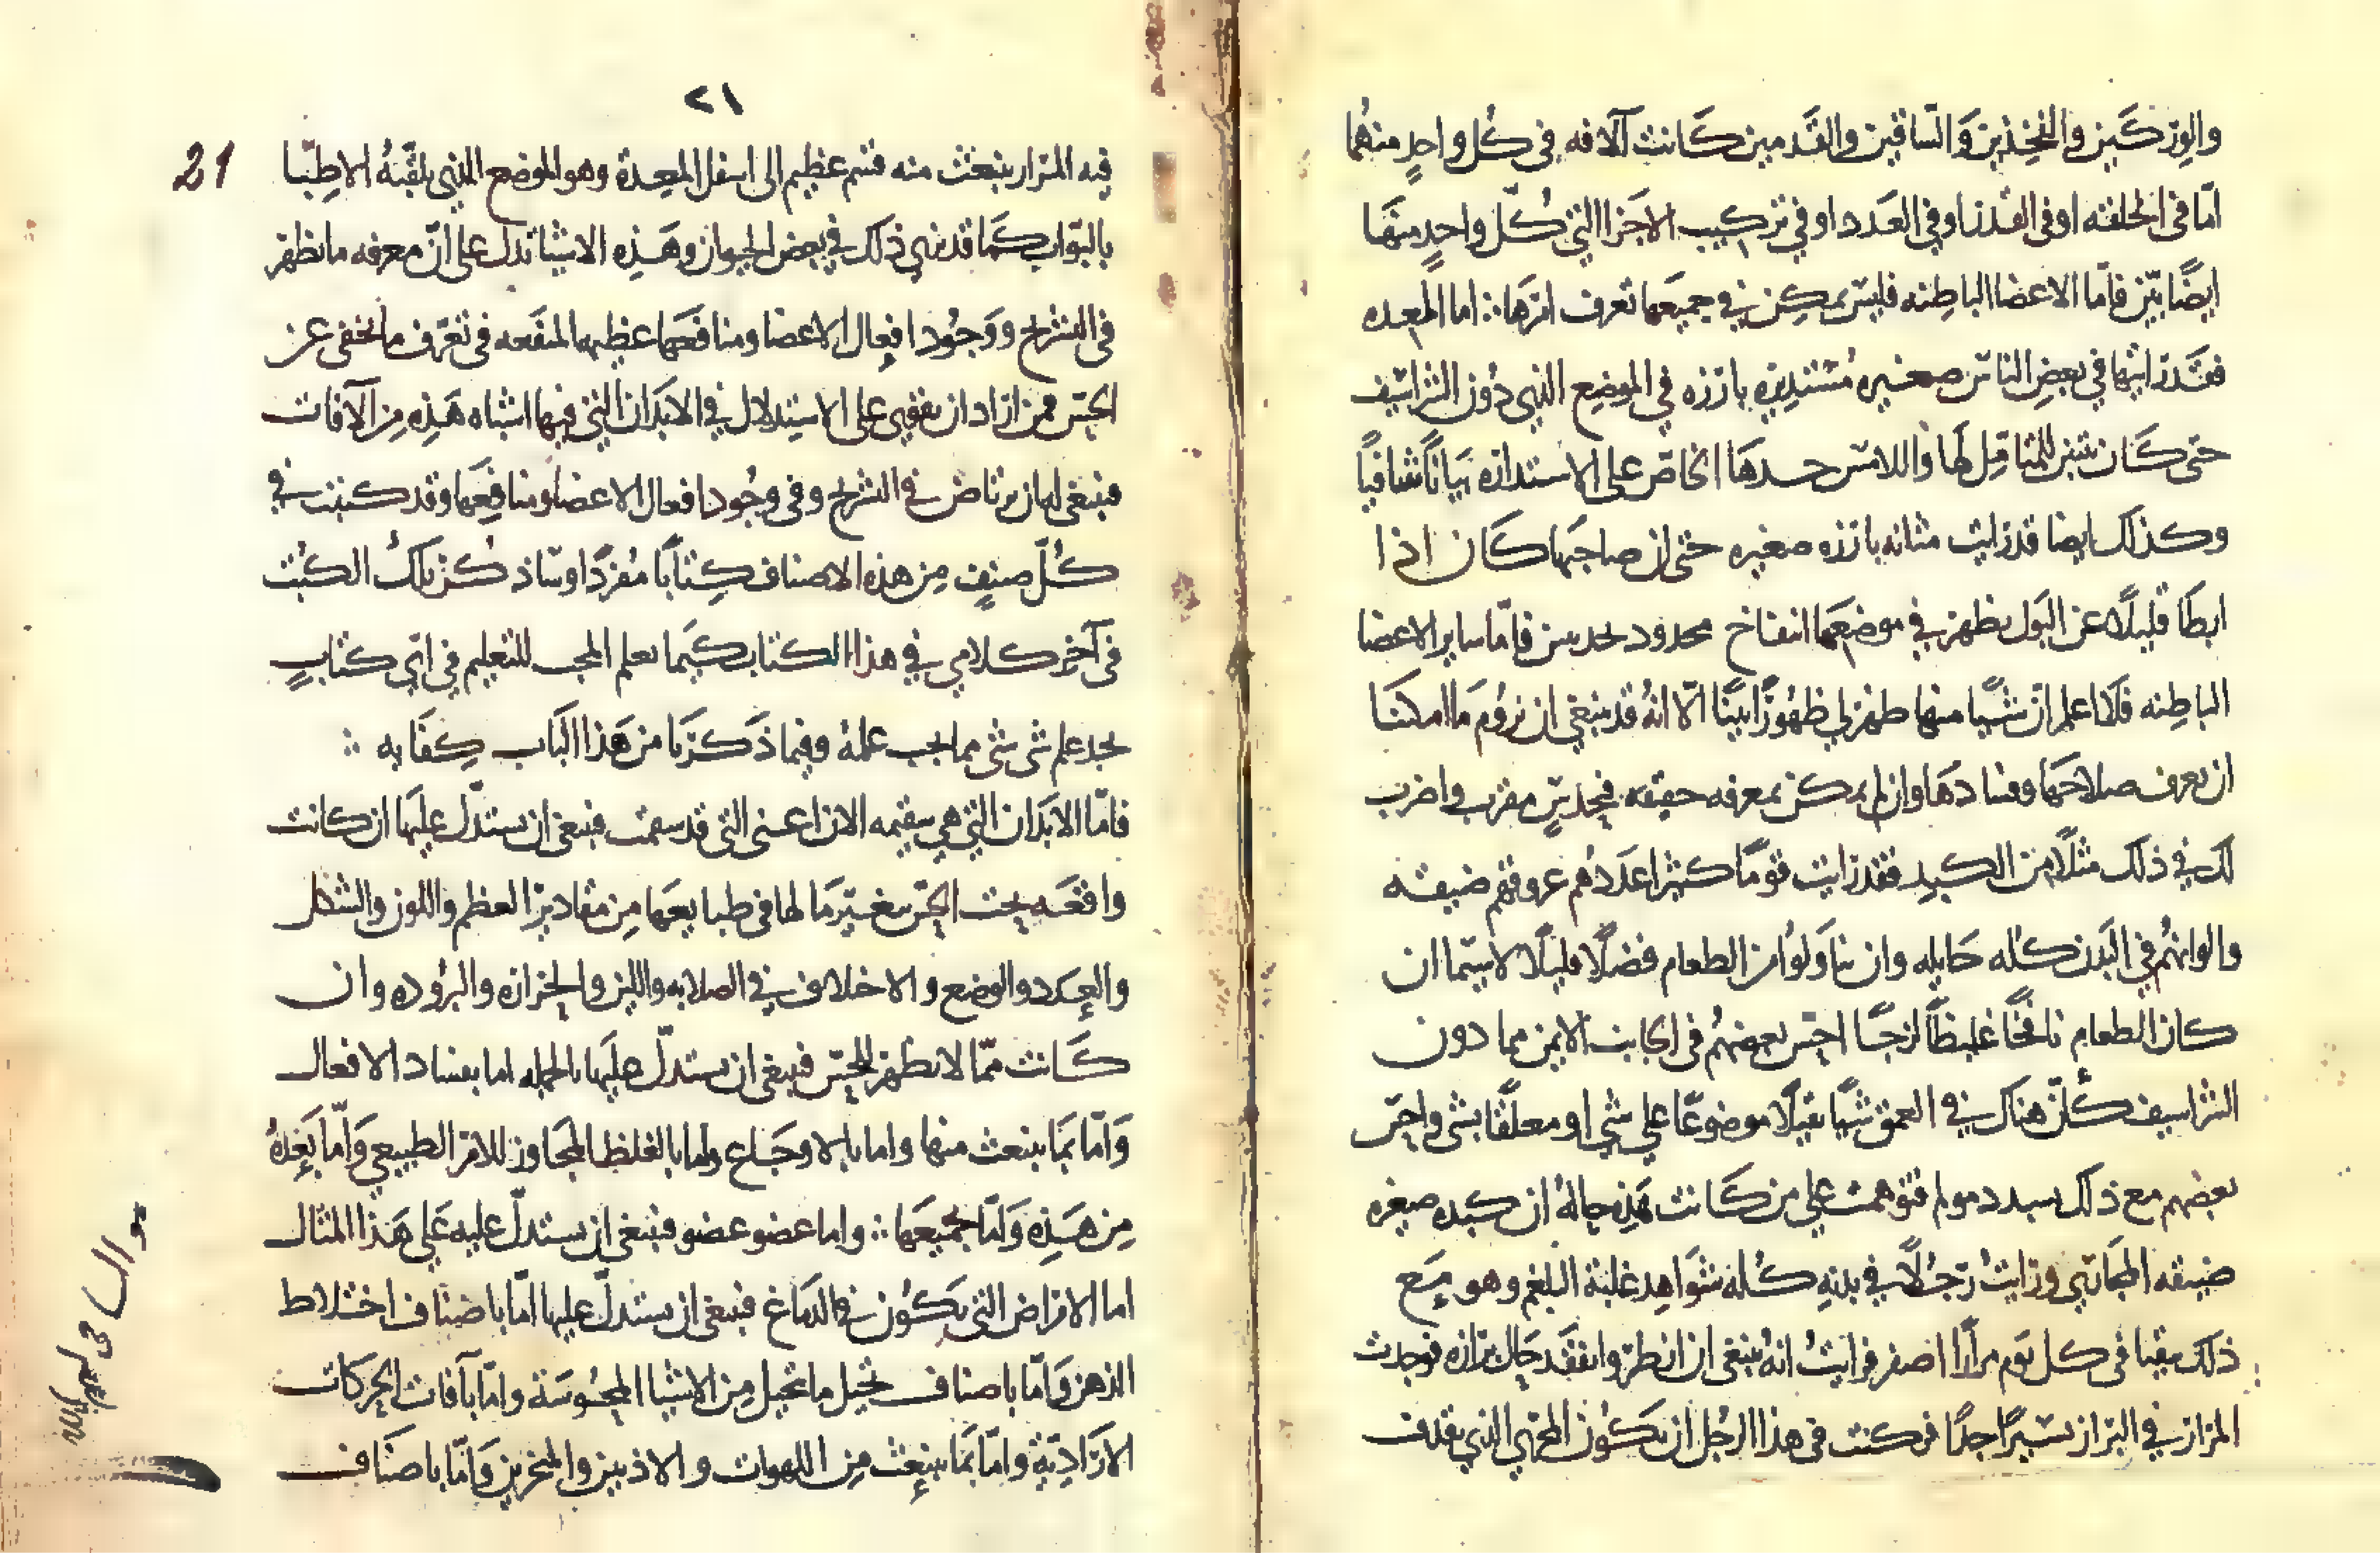 والوركين والفخذين والساقين والقدمين كانت الآفه في كل واحد منهما
امّا في الخلقته او في القدر او في العدد او في تركيب الاجزا التي كلّ واحدٍ منها
ايضًا بيّن فامّا الاعضا الباطنه فليس يمكن في جميعها تعرف امرها ∴ اما المعده
فقد رايتها في بعض الناس صغيره مستديره بارزه في الموضع الذي دون الشراسيف
حتى كان تبين للمتامّل لها واللامس حدها الخاص على الاستدارة بيانًا شافيًا
وكذلك ايضا قد رايت مثانه بارزه صغيره حتى ان صاحبها كان اذا
ابطا قليلًا عن البول يظهر في موضعها انتفاخ محدود بحد بين فامّا ساير الاعضا
الباطنه فلا اعلم انّ شيًا منها ظهر لي ظهورًا بيّنًا الّا انهُ قد ينبغي ان نروم ما امكننا
ان نعرف صلاحها وفسادها وان لم يمكن بمعرفه حقيقه فبحدسٍ مقرب واضرب
لك في ذلك مثلًا من الكبد فقد رايت قومًا كثيرا عددهم عروقهم ضيقه
والوانهم في البدن كله حايله وان تناولوا من الطعام فضلًا قليلًا لا سيّما ان
كان الطعام نافخًا غليظًا لزجًا احس بعضهم في الجانب الايمن مما دون
الشراسيف كأنّ هناك في العمق شيًا ثقيلًا موضوعًا على شي او معلّقًا بشي واحسّ
بعضهم مع ذلك بتمدد مولم فتوهمت على من كانت هذه حاله ان كبده صغيره
ضيقه المجاري ورايتُ رجُلًا في بدنه كله شواهد غلبة البلغم وهو مع
ذلك يقيا في كل يوم مرارا اصفر فرايتُ انهُ ينبغي ان انظر واتفقد حال برازه فوجدت
المرار في البراز يسيرًا جدًا فركنت في هذا الرجل ان يكون المجري الذي يقذف
٢١
21
فيه المرار ينبعث منه قسم عظيم الى اسفل المعدة وهو الموضع الذي يلقّبهُ الاطبّا
بالبوّاب كما قد نري ذلك في بعض الحيوان وهذه الاشيا تدلّ على انّ معرفه ما يظهر
في التشريح ووجود افعال الاعضا ومنافعها عظيمه المنفعه في تعرّف ما يخفى عن
الحسّ فمن اراد ان يقوي على الاستدلال في الابدان التي فيها اشباه هذه من الآفات
فينبغي له ان يرتاض في التشريح وفي وجود افعال الاعضا ومنافعها وقد كتبت في
كلّ صنفٍ من هذه الاصناف كتابًا مفردًا وساذكر تلك الكتب
في آخر كلامي في هذا الكتاب كيما يعلم المحب للتعليم في ايّ كتابٍ
يجد علم شي شي مما يجب علمهُ وفيما ذكرنا من هذا الباب كفايه ∴
فامّا الابدان التي هي سقيمه الان اعني التي قد سقمت فينبغي ان يستدلّ عليها ان كانت
واقعه بحت الحسّ بتغيّر ما لها في طبايعها من مقادير العظم واللون والشكل
والعدد والوضع والاختلاف في الصلابه واللين والحراره والبروده وان
كانت ممّا لا يظهر للحسّ فينبغي ان يستدلّ عليها بالجمله اما بفساد الافعال
وامّا بما ينبعث منها واما بالاوجاع واما بالغلظ المجاوز للامر الطبيعي وامّا بعدةٍ
من هذه وامّا بجميعها ∴ واما عضو عضو فينبغي ان يستدلّ عليه على هذا المثال
اما الامراض التي تكون في الدماغ فينبغي ان يستدلّ عليها امّا باصناف اختلاط
الذهن وامّا باصناف تخيل ما تخيل من الاشيا المحسوسة وامّا بآفات الحركات
الاراديّة وامّا بما ينبعث من اللهوات والاذنين والمنخرين وامّا باصناف